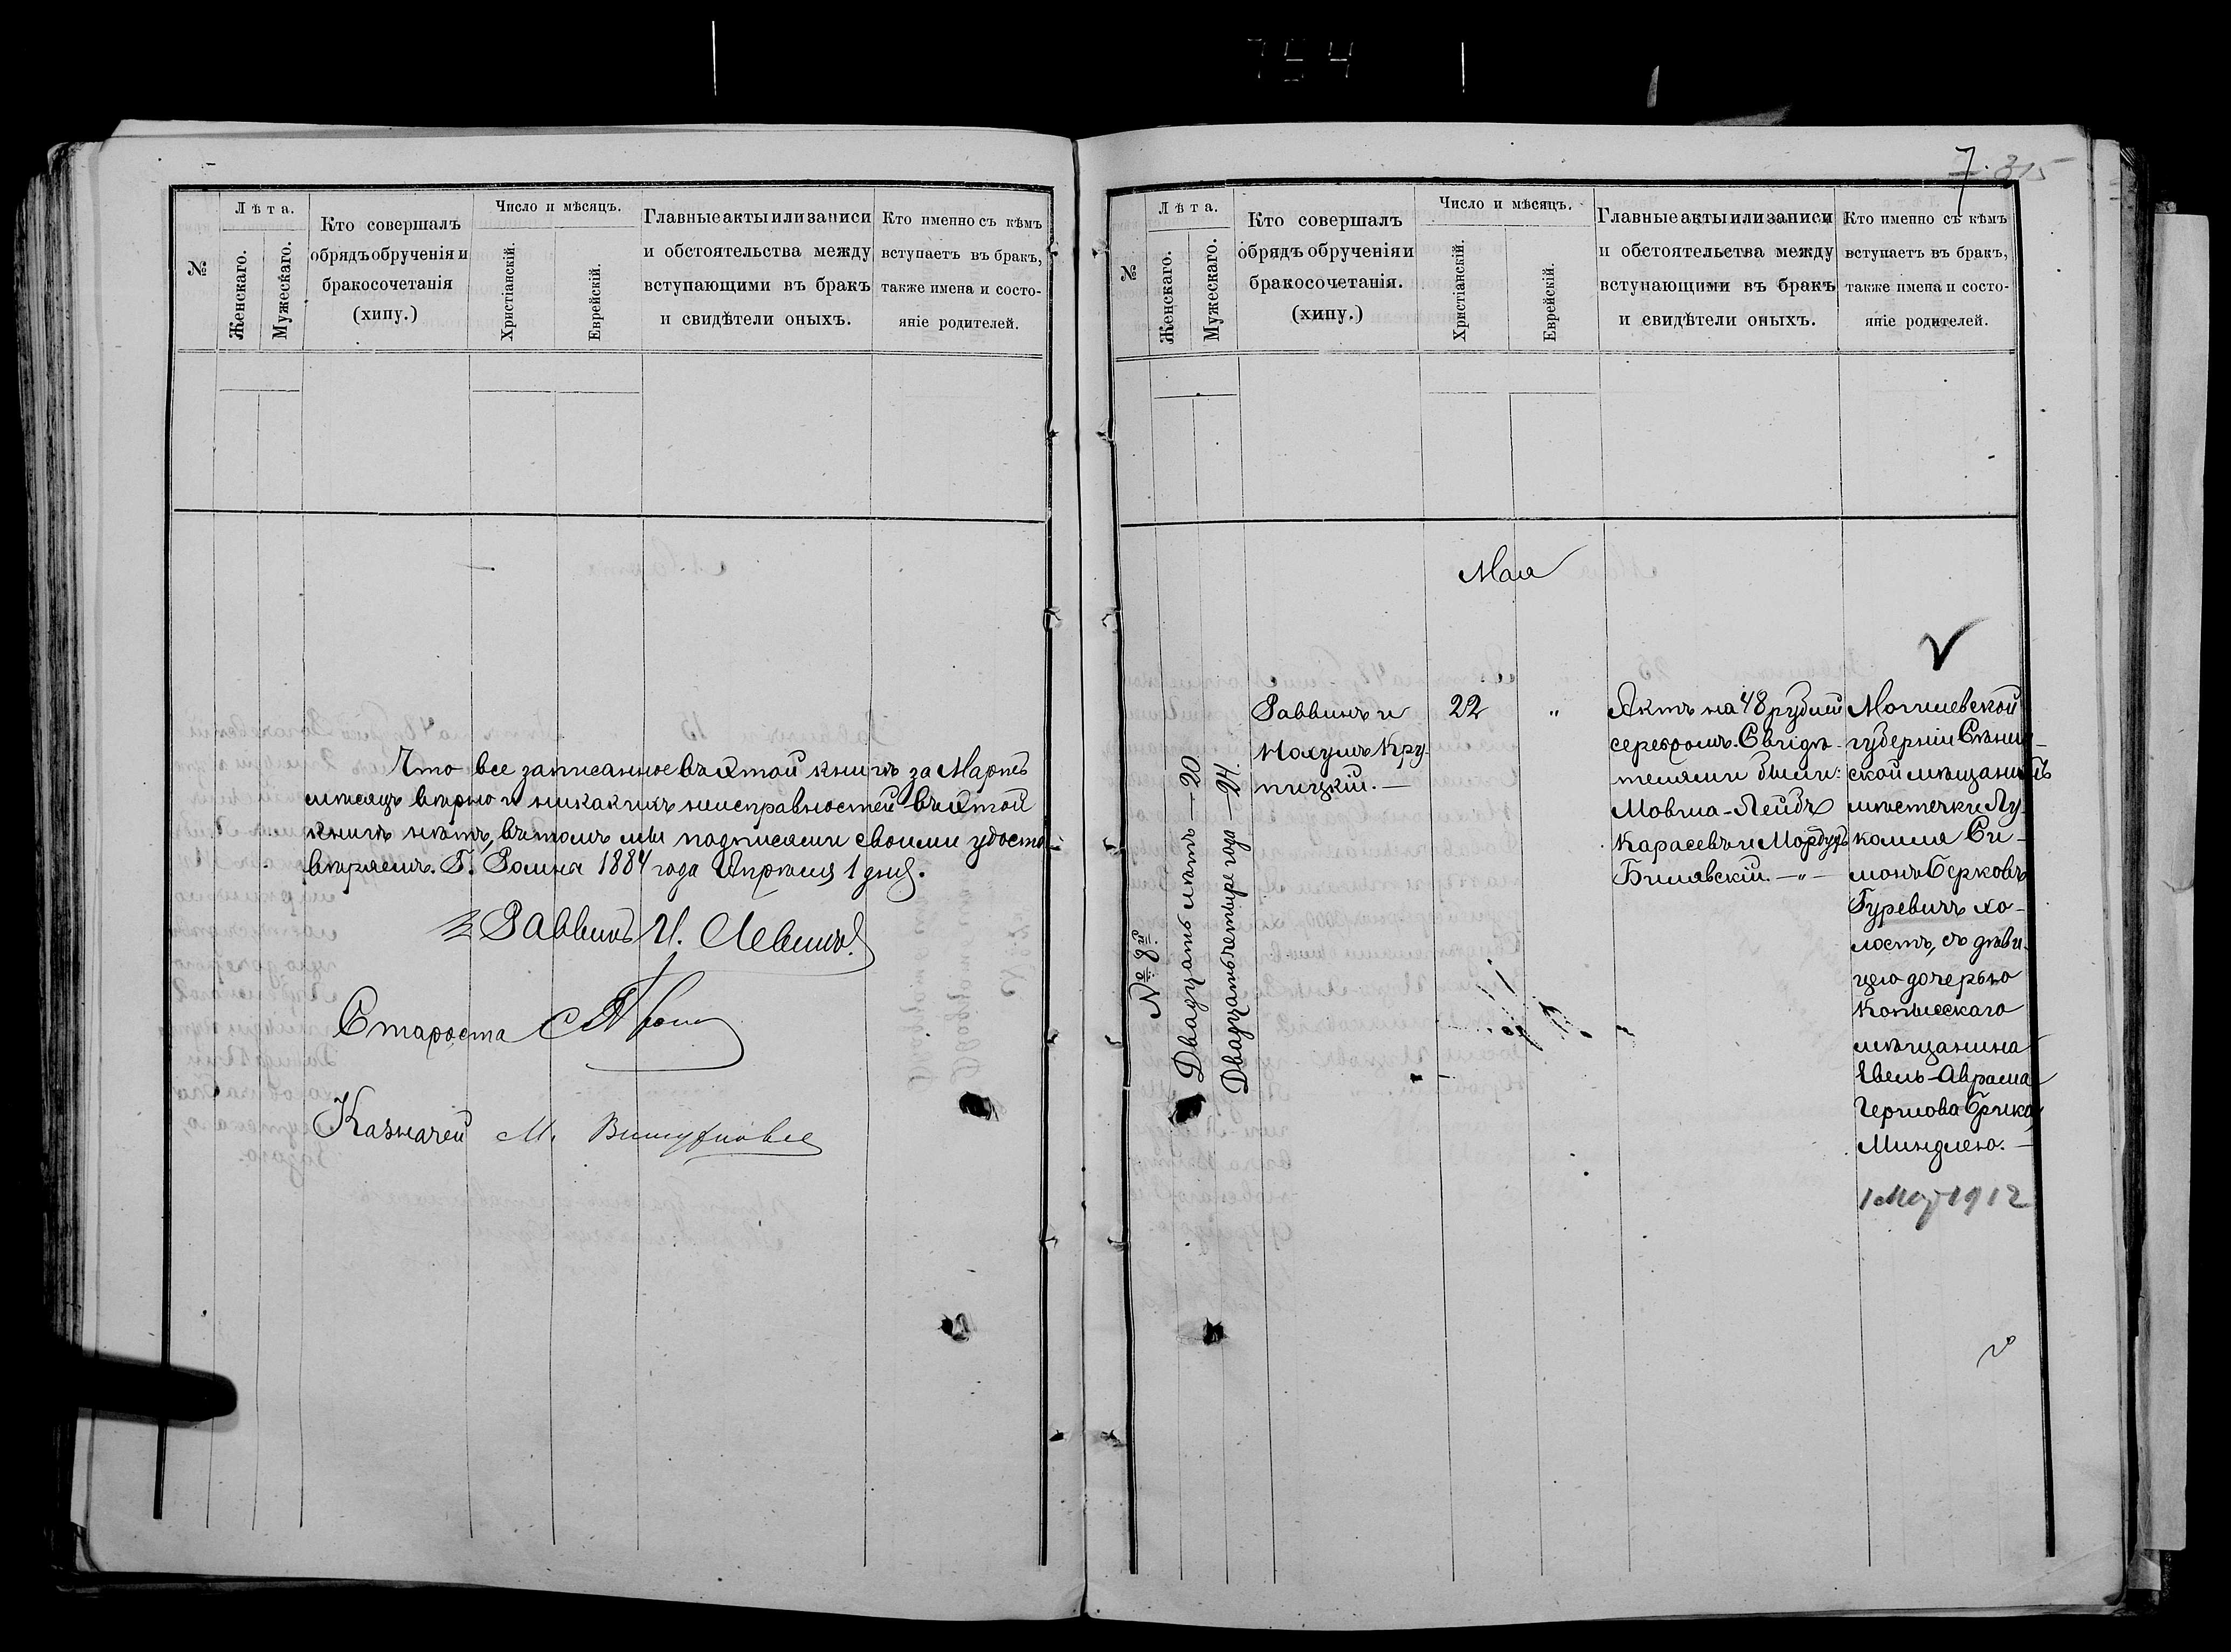 754
№
Лѣта.
Женскаго.
Мужескаго.
Кто совершалъ
обрядъ обрученія и
бракосочетанія
(хипу.)
Число и мѣсяцъ.
Христіанскій.
Еврейскій.
Главные акты или записи
и обстоятельства между
вступающими въ бракъ
и свидѣтели оныхъ.
Кто именно съ кѣмъ
вступаетъ въ бракъ,
также имена и состо-
яніе родителей.
Что все записанное въ этой книгѣ за Мартъ
мѣсяцъ вѣрно и никакихъ неисправностей въ этой
книгѣ нѣтъ, въ томъ мы подписями своими удосто
вѣряемъ. Г. Ромна 1884 года Апрѣля 1 дня.
Раввинъ И. Левинъ
Староста
Казначей М.
7. 315
№
Лѣта.
Женскаго.
Мужескаго.
Кто совершалъ
обрядъ обрученія и
бракосочетанія.
(хипу.)
Число и мѣсяцъ.
Христіанскій.
Еврейскій.
Главные акты или записи
и обстоятельства между
вступающими въ бракъ
и свидѣтели оныхъ.
Кто именно съ кѣмъ
вступаетъ въ бракъ,
также имена и состо-
яніе родителей.
Мая
№ 8й.
Двадцать лѣтъ — 20
Двадцать четыре года — 24.
Раввинъ и
Нохумъ Кру-
пицкій. —
22
"
Актъ на 48 рублей
серебромъ. Свидѣ-
телями были:
Мовша-Лейбъ
Карасевъ и Мордухъ
Билявскій. — " —
Могилевской
губерніи Сѣнин-
ской мѣщанинъ
мѣстечка Лу-
комля Си-
монъ Берковъ
Гуревичъ хо-
лостъ, съ дѣви-
цею дочерью
Копысскаго
мѣщанина
Евель-Аврама
Гершова Брука,
Миндлею. —
1 1912